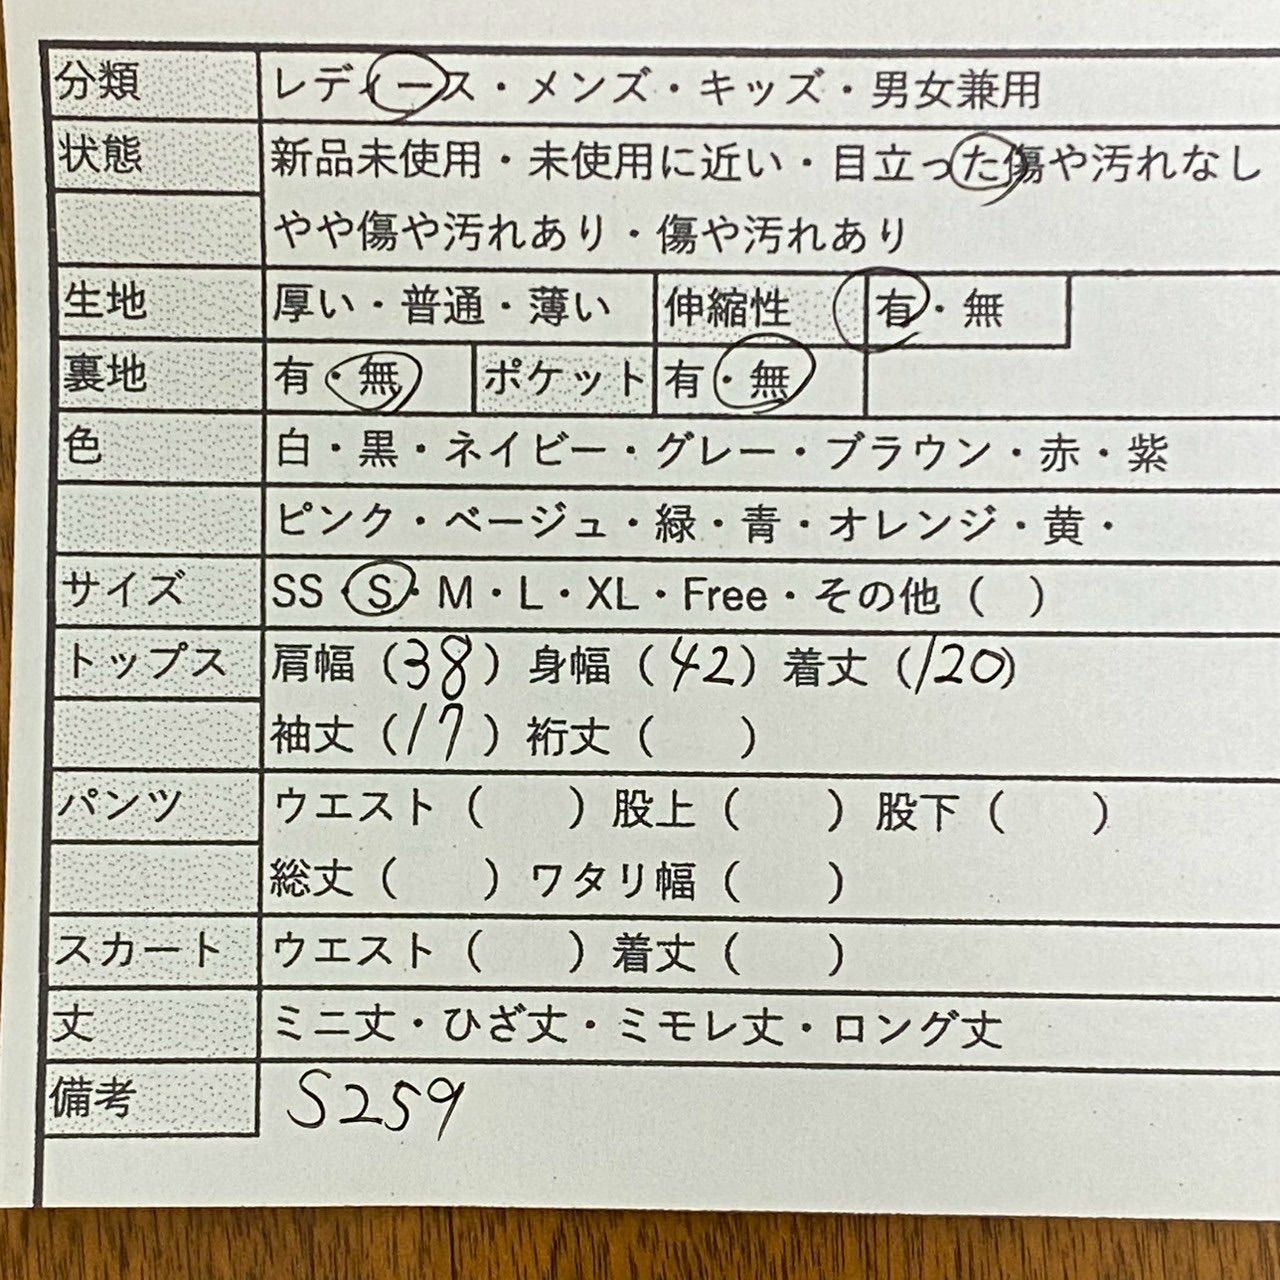 分類 レディース・メンズ・キッズ・男女兼用
状態 新品未使用・未使用に近い・目立った傷や汚れなし
やや傷や汚れあり・傷や汚れあり
生地 厚い・普通・薄い 伸縮性 有・無
裏地 有・無 ポケット 有・無
色 白・黒・ネイビー・グレー・ブラウン・赤・紫
ピンク・ベージュ・緑・青・オレンジ・黄・
サイズ SS・S・M・L・XL・Free・その他（ ）
トップス 肩幅（38）身幅（42）着丈（120）
袖丈（17）裄丈（ ）
パンツ ウエスト（ ）股上（ ）股下（ ）
総丈（ ）ワタリ幅（ ）
スカート ウエスト（ ）着丈（ ）
丈 ミニ丈・ひざ丈・ミモレ丈・ロング丈
備考 S259